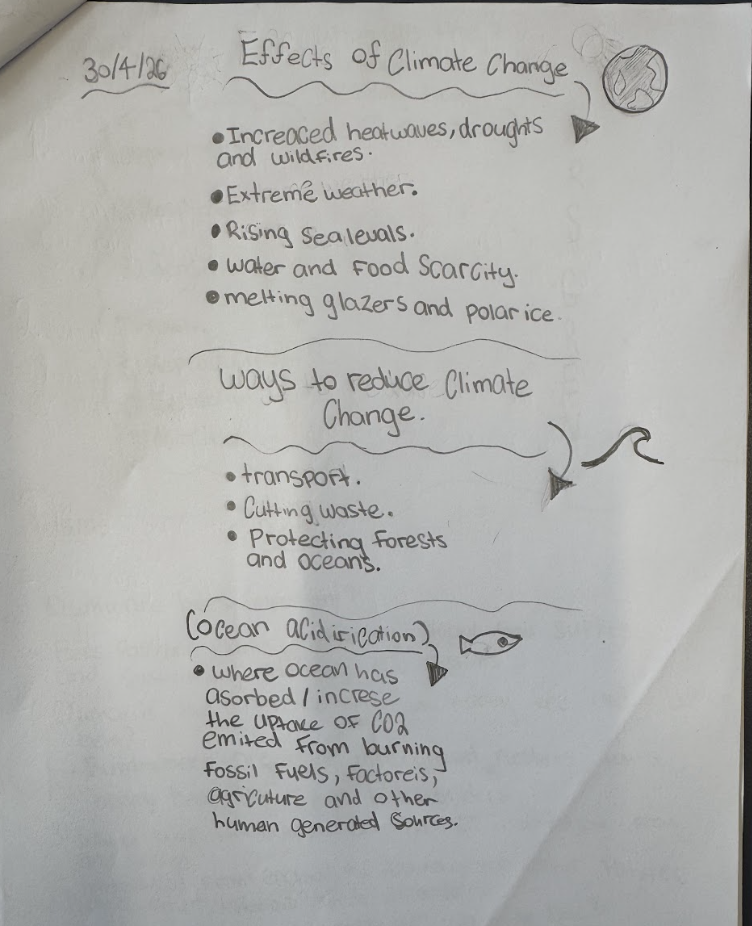 30/4/26
Effects of Climate Change
• Increaced heatwaves, droughts
and wildfires.
• Extreme weather.
• Rising sea levals.
• water and Food Scarcity.
• melting glazers and polar ice.
Ways to reduce Climate
Change.
• transport.
• Cutting waste.
• Protecting forests
and oceans.
(ocean acidirication)
• where ocean has
asorbed / increse
the uptake of CO2
emited from burning
fossil fuels, factoreis,
agricuture and other
human generated sources.